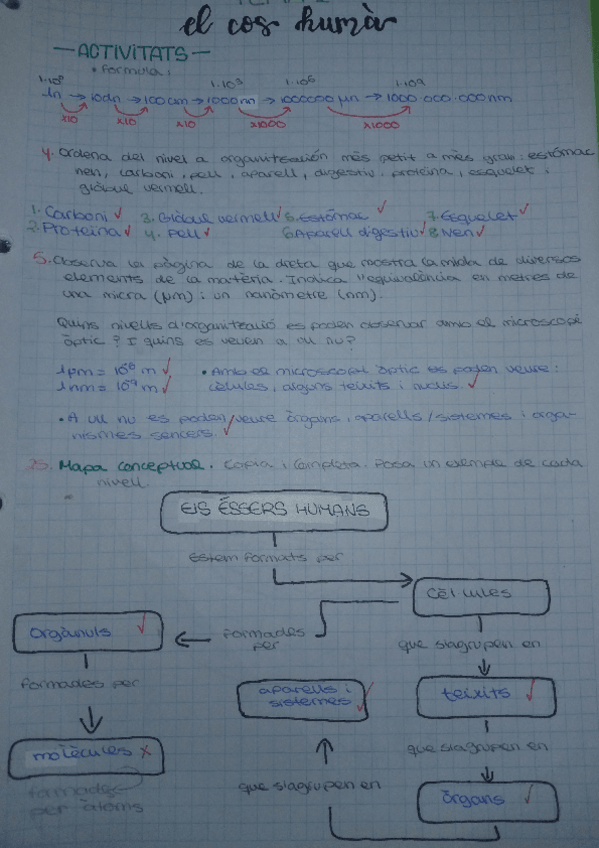 el cos humà
—ACTIVITATS—
• Formula:
1·10⁰ 1·10³ 1·10⁶ 1·10⁹
→ 10dm → 100cm → 1000mm → 1000000 μm → 1000.000.000nm
x10 x10 x10 x1000 x1000
4. Ordena del nivell d'organització més petit a més gran: estómac
nen, carboni, pell, aparell, digestiu, proteïna, esquelet i
glòbul vermell.
1. Carboni ✓ 3. Glòbul vermell ✓ 5. Estómac ✓ 7. Esquelet ✓
2. Proteïna ✓ 4. Pell ✓ 6. Aparell digestiu ✓ 8. Nen ✓
5. Observa la pàgina de la dreta que mostra la mida de diversos
elements de la matèria. Indica l'equivalència en metres de
una micra (μm) i un nanòmetre (nm).
Quins nivells d'organització es poden observar amb el microscopi
òptic? I quins es veuen a ull nu?
1μm = 10⁶ m ✓ • Amb el microscopi òptic es poden veure:
1nm = 10⁹ m ✓ cèl·lules, alguns teixits i nuclis. ✓
• A ull nu es poden veure òrgans, aparells/sistemes i orga-
nismes sencers. ✓
25. Mapa conceptual. Copia i completa. Posa un exemple de cada
nivell.
ELS ÉSSERS HUMANS
Estem formats per
cèl·lules
orgànuls ✓
formades
per
que s'agrupen en
formades per
aparells i
sistemes ✓
teixits ✓
molècules x
que s'agrupen en
formades
per àtoms
que s'agrupen en
òrgans ✓